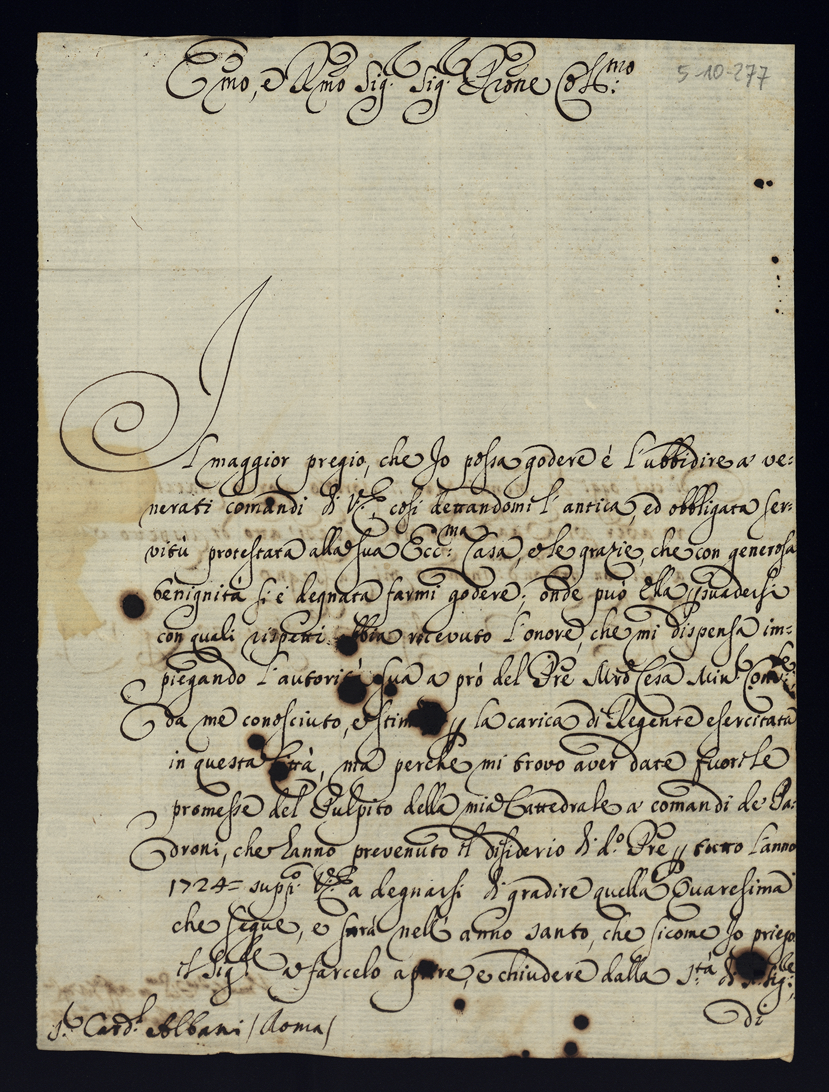 Emo, e Rmo Sig.r Sig.r Prone Coll:mo
5-10-277
Il maggior pregio, che Jo possa godere è l'ubbidire a' ve=
nerati comandi di V.E. così dettandomi l'antica, ed obbligata ser=
vitù protestata alla sua Ecc:ma Casa, e le grazie, che con generosa
benignità si è degnata farmi godere; onde può Ella psuadersi
con quali rispetti abbia ricevuto l'onore, che mi dispensa im=
piegando l'autorità sua a prò del Pre Mro Cesa Min. Con.le
da me conosciuto, e p la carica di Regente esercitata
in questa Città, ma perche mi trovo aver date fuori le
promesse del Pulpito della mia Cattedrale a' comandi de Pa=
droni, che hanno prevenuto il disiderio di d.o Pre p tutto l'anno
1724= supp. V.E. a degnarsi di gradire quella Quaresima
che segue, e sarà nell' anno santo, che sicome Jo priego
il Sig.re a farcelo aprire, e chiudere dalla S.tà di Sig.
di
S.r Card.l Albani / Roma /